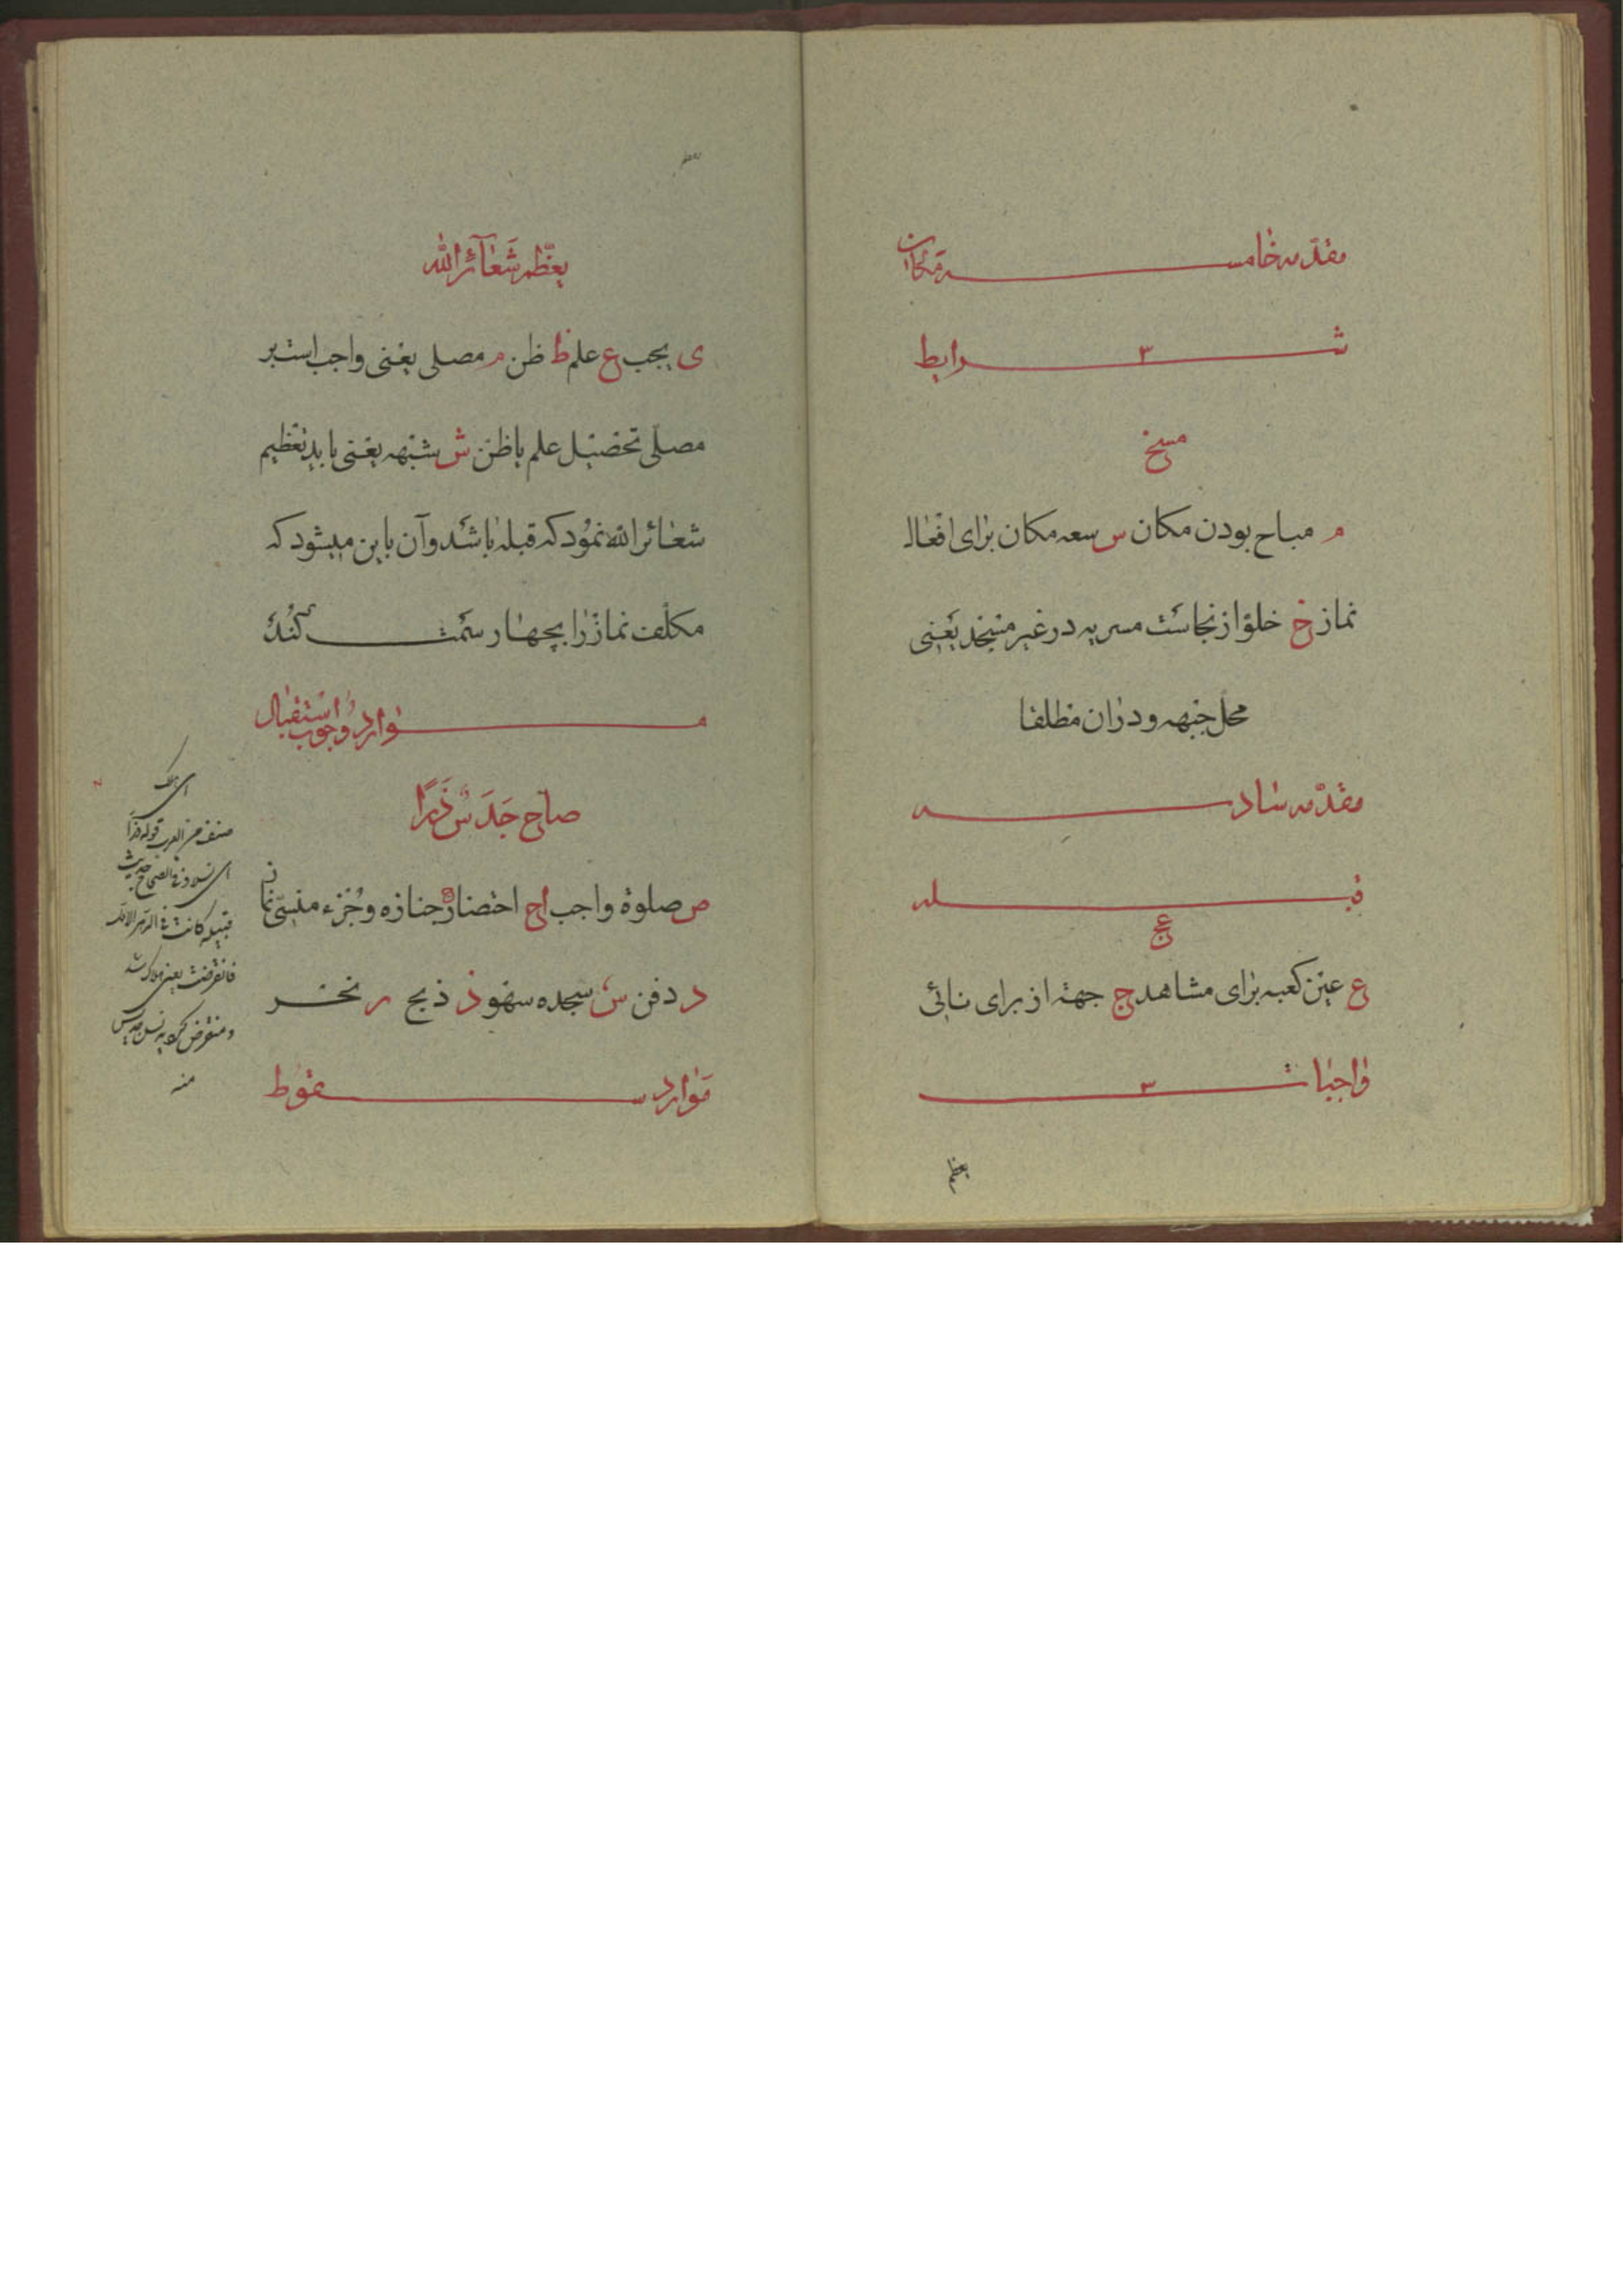 مقدّمه خامسه مکان
شرایط ۳
مسخ
م مباح بودن مکان س سعه مکان برای افعال
نماز خ خلوّ از نجاست مسریه در غیر مسجد یعنی
محل جبهه و در آن مطلقا
مقدّمه سادسه
قبله
عج
ع عین کعبه برای مشاهد ج جهة از برای نائی
واجبات ۳
یعظم
یعظّم شعآئر الله
ی یجب ع علم ظ ظن م مصلی یعنی واجب است بر
مصلّی تحصیل علم یا ظن ش شبهه یعنی باید تعظیم
شعائر الله نمود که قبله باشد و آن باین میشود که
مکلّف نماز را بچهار سمت کند
موارد وجوب استقبال
صاح جَدَسٌ ذَرًا
ص صلوة واجب اح احتضار ج جنازه و جُزء منسیّ نماز
د دفن س سجده سهو ذ ذبح ر نحر
موارد سقوط
ای هلک
صنف من العرب قوله ذرا
قبیله کانت فی الدهر الاول
فانقرضت یعنی هلاک شد
منه